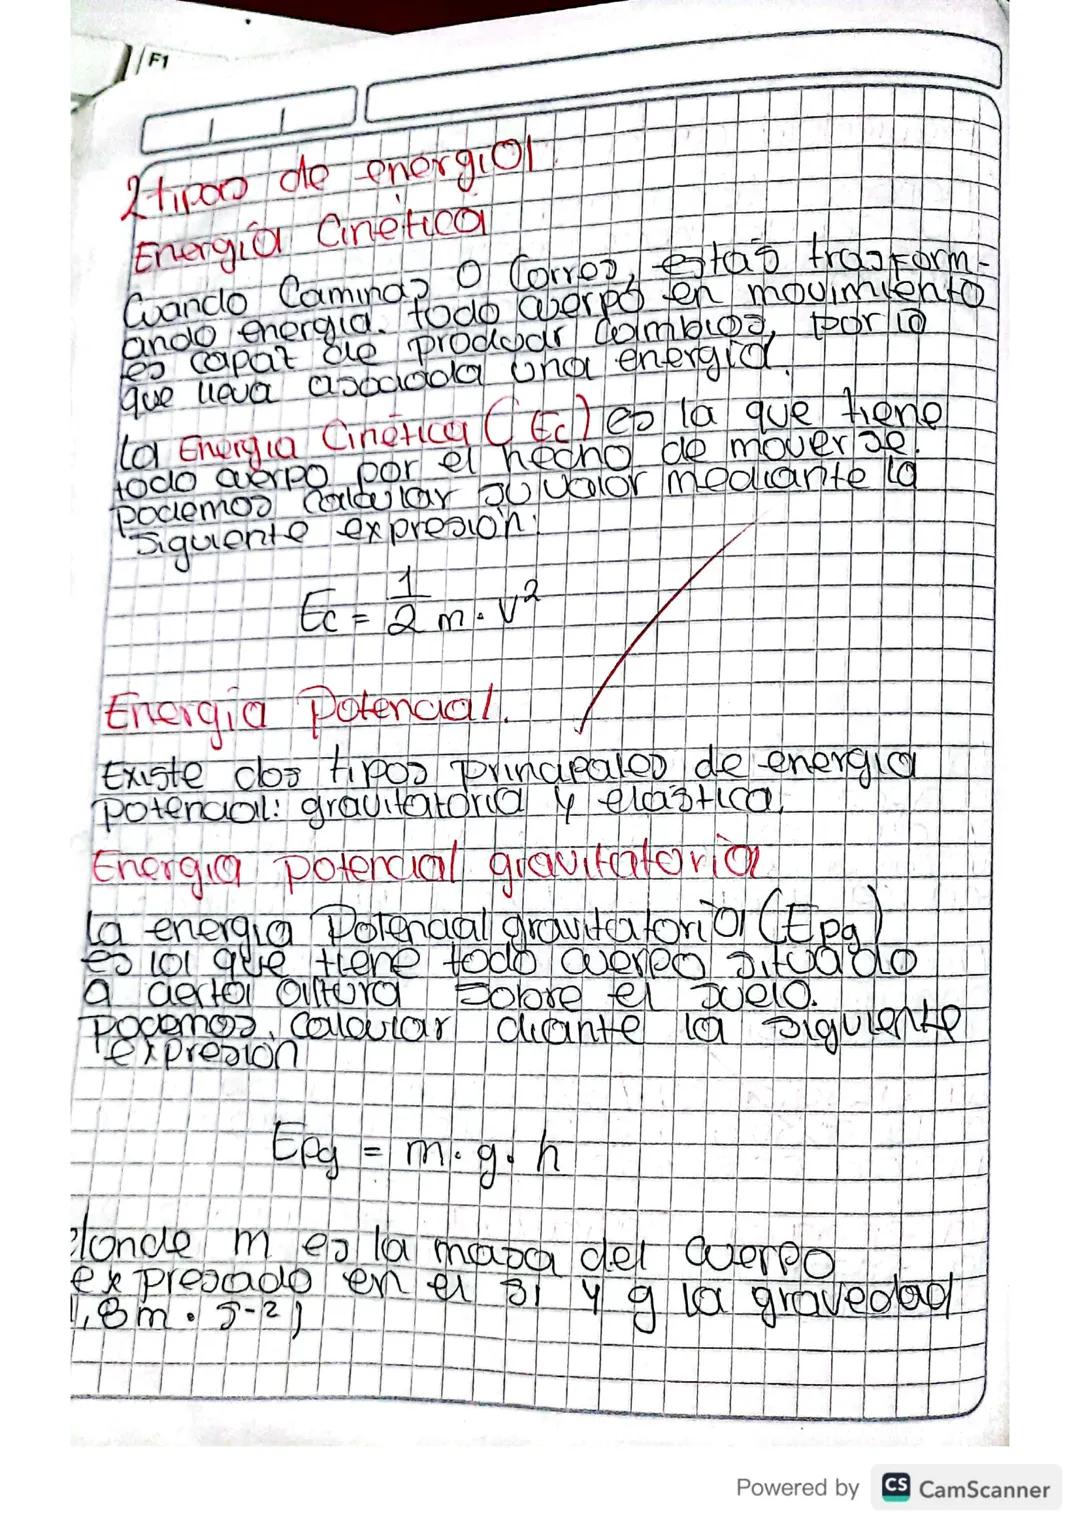 F1
2 tipos de energia
Energía Cinética
Cuando Caminas o Corres, estas trasform-
ando energia. todo cuerpo en movimiento
es capaz de producir cambios, por lo
que lleva asociada una energia.
La Energia Cinética (Ec) es la que tiene
todo cuerpo por el hecho de moverse.
podemos calcular su valor mediante la
siguiente expresión:
Ec = 1/2 m · v²
Energía Potencial.
Existe dos tipos principales de energia
potencial: gravitatoria y elástica,
Energia potencial gravitatoria
La energia Potencial gravitatoria (Epg)
es la que tiene todo cuerpo situado
a cierta altura sobre el suelo.
podemos calcular diante la siguiente
expresión
Epg = m · g · h
donde m es la masa del cuerpo
expresado en el SI y g la gravedad
,8 m · s-2)
Powered by CS CamScanner